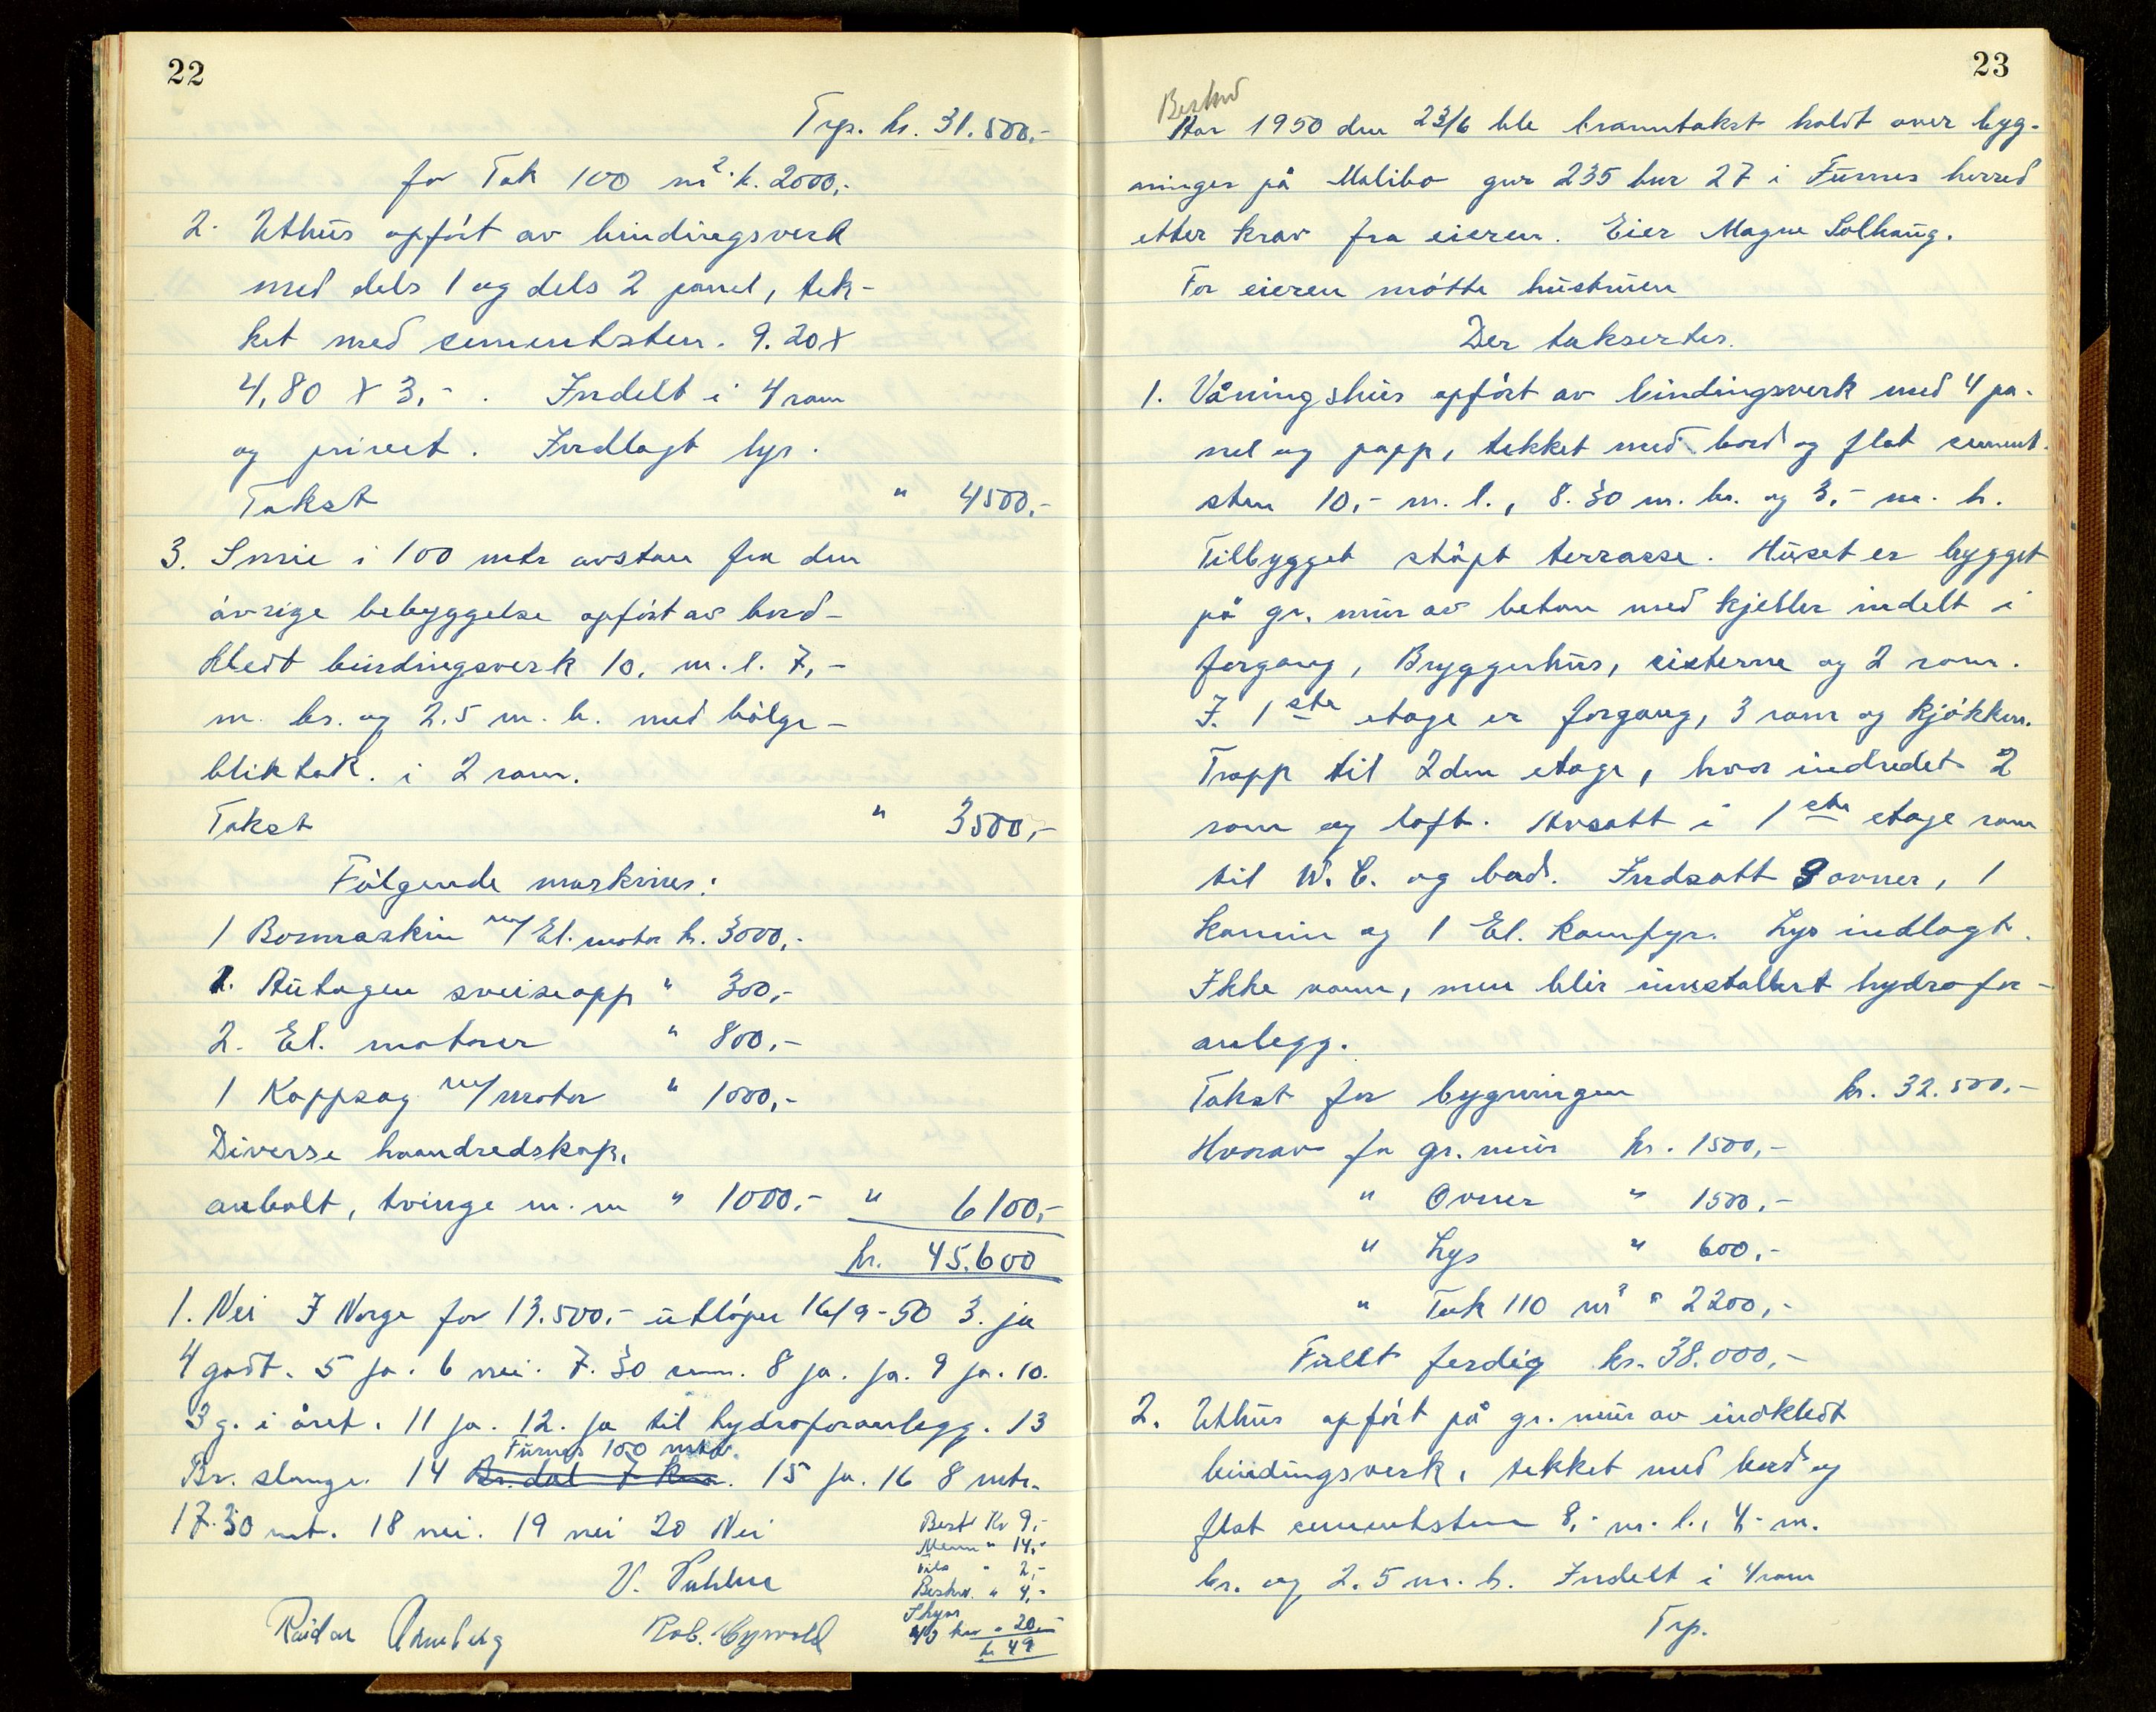 22
Trp. kr. 31.500,-
for Tak 100 m². k. 2000,-
2. Uthus opført av bindingsverk
med dels 1 og dels 2 panel, tek-
ket med cementsten. 9.20 x
4,80 x 3,- . Inndelt i 4 rom
og privet. Inndlagt lys.
Takst " 4500,-
3. Smie i 100 mtr avstan fra den
øvrige bebyggelse opført av bord-
kledt bindingsverk 10. m. l. 7,-
m. br. og 2.5 m. h. med bølge-
bliktak. i 2 rom.
Takst " 3500,-
Følgende maskiner:
1 Bormaskin m/ El. motor kr. 3000,-
1. Autogen sveiseapp " 300,-
2. El. motorer " 800,-
1 Kappsag m/motor " 1000,-
Diverse haandredskap,
anbolt, tvinge m. m " 1000,- " 6100,-
kr. 45.600
1. Nei I Norge for 13.500,- utløper 16/9-50 3. ja
4 godt. 5 ja. 6 nei. 7. 30 cm. 8 ja. ja. 9 ja. 10.
3 g. i året. 11 ja. 12. ja til hydroforanlegg. 13
Furnes 100 mtr.
Br. slange. 14 Br.dal 7 km. 15 ja. 16 8 mtr.
17. 30 mt. 18 nei. 19 nei 20 Nei
Best Kr 9,-
Menn " 14,-
" 2,-
V. Bestw. " 4,-
Skyss
40 km " 20,-
kr 49
Reidar Arneberg Rob.
23
Bestwd
Aar 1950 den 23/6 ble branntakst holdt over byg-
ninger på Molibo gnr 235 bnr 27 i Furnes herred
etter krav fra eieren. Eier Magne Solhaug.
For eieren møtte hustruen
Der taksertes.
1. Våningshus opført av bindingsverk med 4 pa-
nel og papp, tekket med bord og flat cement-
sten 10,- m. l., 8.30 m. br. og 3,- m. h.
Tilbygget støpt terrasse. Huset er bygget
på gr. mur av beton med kjeller indelt i
forgang, Bryggerhus, cisterne og 2 rom.
I. 1ste etage er forgang, 3 rom og kjøkken.
Trapp til 2den etage, hvor indredet 2
rom og loft. Avsatt i 1ste etage rom
til W.C. og bad. Indsatt 3 ovner, 1
kamin og 1 El. komfyr. Lys indlagt.
Ikke vann, men blir innstallert hydrofor-
anlegg.
Takst for bygningen kr. 32.500,-
Hvorav for gr. mur kr. 1500,-
" Ovner " 1500,-
" Lys " 600,-
" Tak 110 m² " 2200,-
Fullt ferdig kr. 38.000,-
2. Uthus opført på gr. mur av indkledt
bindingsverk, tekket med bord og
flat cementsten 8,- m. l., 4,- m.
br. og 2.5 m. h. Indelt i 4 rom
Trp.